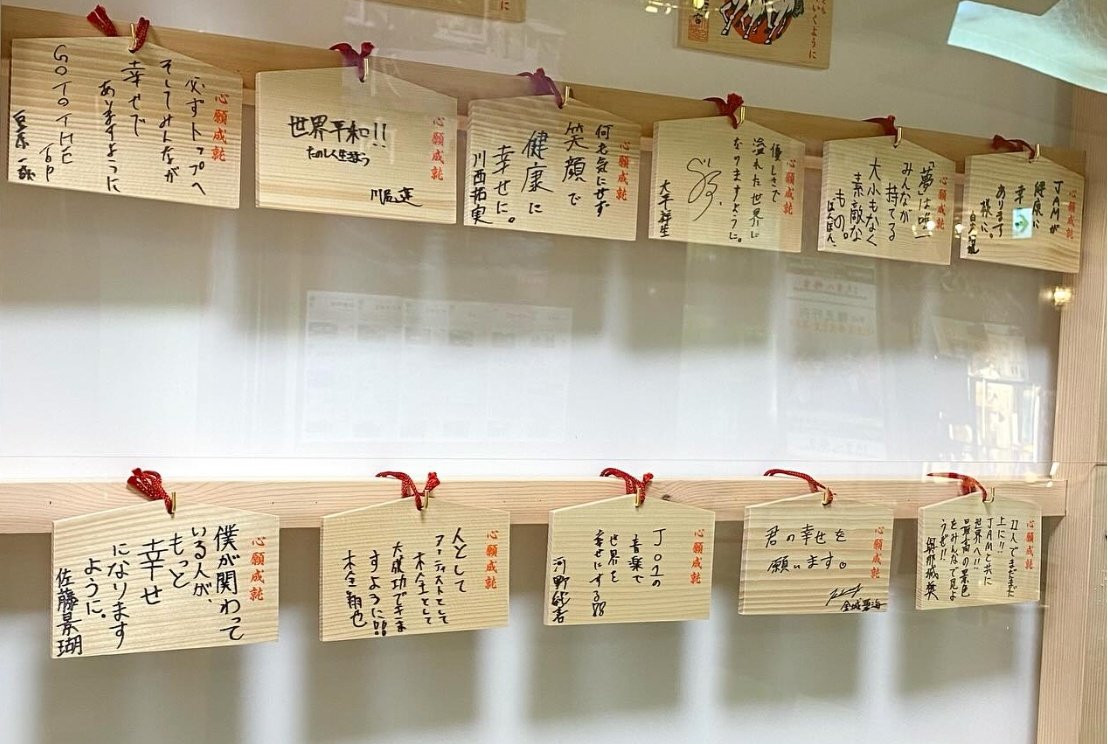 いくように
心願成就
必ずトップへ
そしてみんなが
幸せで
ありますように
GO TO THE TOP
心願成就
世界平和!!
たのしく生きよう
川尻蓮
心願成就
何も気にせず
笑顔で
健康に
幸せに。
川西拓実
心願成就
優しさで
溢れた世界に
なりますように。
大平祥生
心願成就
「夢は唯一
みんなが
持てる
大小もなく
素敵な
もの。
心願成就
JAMが
健康に
幸
あります
様に。
心願成就
僕が関わって
いる人が、
もっと
幸せ
になります
ように。
佐藤景瑚
心願成就
人として
アーティストとして
木全として
大成功できま
すように!!
木全翔也
心願成就
JO1の
音楽で
世界を
幸せにする
河野純喜
心願成就
君の幸せを
願います。
金城碧海
心願成就
11人でまだまだ
上に!!
JAMと共に
世界へ!!
最高の景色
をみんなで見よ
うぜ!!
與那城奨